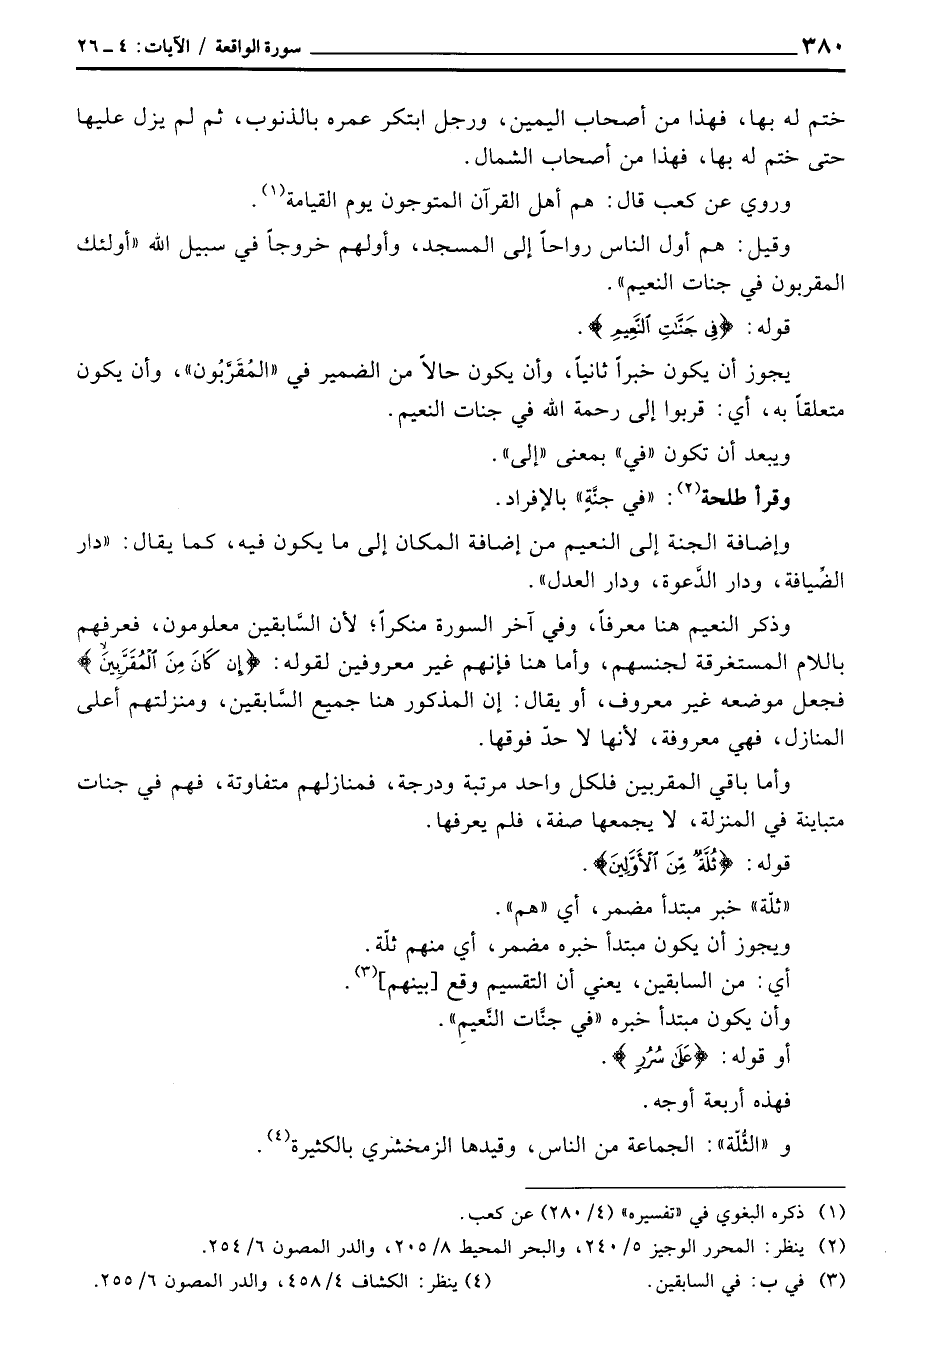 ٣٨٠ ـــــــــ سورة الواقعة / الآيات: ٤ ـ ٢٦
ختم له بها، فهذا من أصحاب اليمين، ورجل ابتكر عمره بالذنوب، ثم لم يزل عليها
حتى ختم له بها، فهذا من أصحاب الشمال.
وروي عن كعب قال: هم أهل القرآن المتوجون يوم القيامة(١).
وقيل: هم أول الناس رواحاً إلى المسجد، وأولهم خروجاً في سبيل الله «أولئك
المقربون في جنات النعيم».
قوله: ﴿فِي جَنَّاتِ ٱلنَّعِيمِ﴾.
يجوز أن يكون خبراً ثانياً، وأن يكون حالاً من الضمير في «المُقَرَّبُون»، وأن يكون
متعلقاً به، أي: قربوا إلى رحمة الله في جنات النعيم.
ويبعد أن تكون «في» بمعنى «إلى».
وقرأ طلحة(٢): «في جنَّةِ» بالإفراد.
وإضافة الجنة إلى النعيم من إضافة المكان إلى ما يكون فيه، كما يقال: «دار
الضِّيافة، ودار الدَّعوة، ودار العدل».
وذكر النعيم هنا معرفاً، وفي آخر السورة منكراً؛ لأن السَّابقين معلومون، فعرفهم
باللام المستغرقة لجنسهم، وأما هنا فإنهم غير معروفين لقوله: ﴿إِن كَانَ مِنَ ٱلْمُقَرَّبِينَ﴾
فجعل موضعه غير معروف، أو يقال: إن المذكور هنا جميع السَّابقين، ومنزلتهم أعلى
المنازل، فهي معروفة، لأنها لا حدّ فوقها.
وأما باقي المقربين فلكل واحد مرتبة ودرجة، فمنازلهم متفاوتة، فهم في جنات
متباينة في المنزلة، لا يجمعها صفة، فلم يعرفها.
قوله: ﴿ثُلَّةٌ مِّنَ ٱلْأَوَّلِينَ﴾.
«ثلّة» خبر مبتدأ مضمر، أي «هم».
ويجوز أن يكون مبتدأ خبره مضمر، أي منهم ثلّة.
أي: من السابقين، يعني أن التقسيم وقع [بينهم](٣).
وأن يكون مبتدأ خبره «في جنَّات النَّعيمِ».
أو قوله: ﴿عَلَىٰ سُرُرٍ﴾.
فهذه أربعة أوجه.
و «الثُّلّة»: الجماعة من الناس، وقيدها الزمخشري بالكثيرة(٤).
(١) ذكره البغوي في «تفسيره» (٤/ ٢٨٠) عن كعب.
(٢) ينظر: المحرر الوجيز ٥/ ٢٤٠، والبحر المحيط ٨/ ٢٠٥، والدر المصون ٦/ ٢٥٤.
(٣) في ب: في السابقين. (٤) ينظر: الكشاف ٤/ ٤٥٨، والدر المصون ٦/ ٢٥٥.